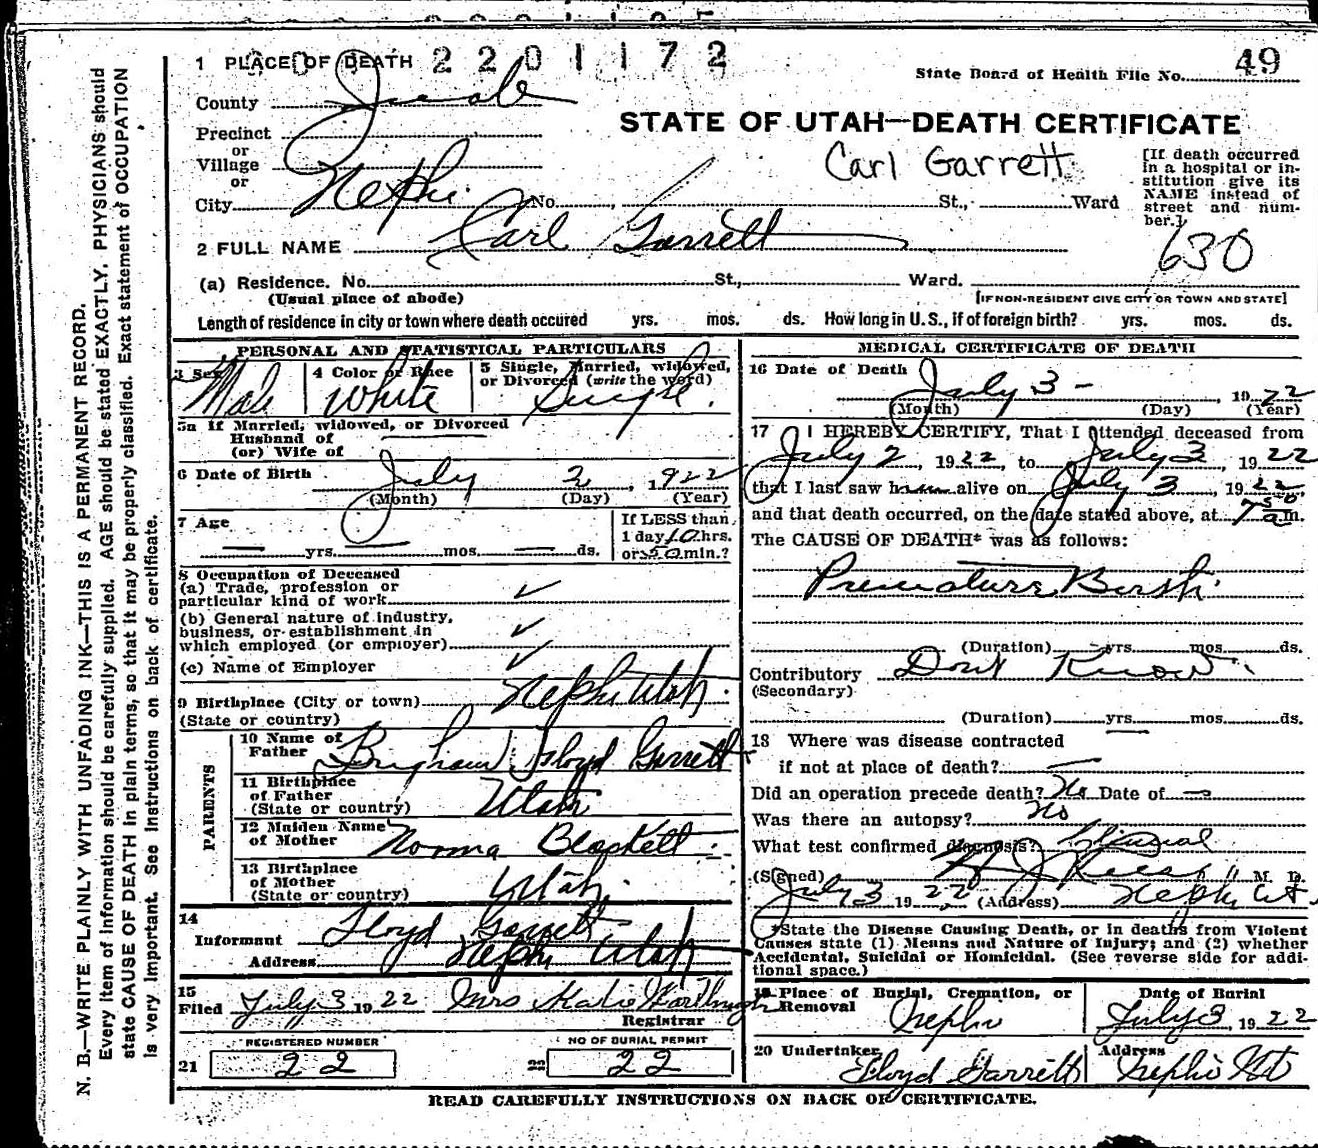 N. B.—WRITE PLAINLY WITH UNFADING INK—THIS IS A PERMANENT RECORD.
Every item of information should be carefully supplied. AGE should be stated EXACTLY. PHYSICIANS should
state CAUSE OF DEATH in plain terms, so that it may be properly classified. Exact statement of OCCUPATION
is very important. See instructions on back of certificate.
1 PLACE OF DEATH 2201172
State Board of Health File No. 49
County Juab
STATE OF UTAH—DEATH CERTIFICATE
Precinct
or
Village
or
City Nephi No. , St., Ward
Carl Garrett
[If death occurred
in a hospital or in-
stitution give its
NAME instead of
street and num-
ber.]
630
2 FULL NAME Carl Garrett
(a) Residence. No. St., Ward.
(Usual place of abode) [IF NON-RESIDENT GIVE CITY OR TOWN AND STATE]
Length of residence in city or town where death occured yrs. mos. ds. How long in U.S., if of foreign birth? yrs. mos. ds.
PERSONAL AND STATISTICAL PARTICULARS
3 Sex Male
4 Color or Race White
5 Single, Married, widowed,
or Divorced (write the word)
Single.
5a If Married, widowed, or Divorced
Husband of
(or) Wife of
6 Date of Birth July 2, 1922
(Month) (Day) (Year)
7 Age
— yrs. — mos. — ds.
If LESS than
1 day 10 hrs.
or 50 min.?
8 Occupation of Deceased
(a) Trade, profession or
particular kind of work ✓
(b) General nature of industry,
business, or establishment in
which employed (or employer) ✓
(c) Name of Employer ✓
9 Birthplace (City or town) Nephi Utah.
(State or country)
PARENTS
10 Name of
Father Brigham Floyd Garrett
11 Birthplace
of Father
(State or country) Utah
12 Maiden Name
of Mother Norma Blackett
13 Birthplace
of Mother
(State or country) Utah.
14
Informant Floyd Garrett
Address Nephi Utah
15
Filed July 3 1922 Mrs Katie
Registrar
REGISTERED NUMBER
21 22
NO OF BURIAL PERMIT
22 22
MEDICAL CERTIFICATE OF DEATH
16 Date of Death
July 3 - 1922
(Month) (Day) (Year)
17 I HEREBY CERTIFY, That I attended deceased from
July 2, 1922, to July 3, 1922
that I last saw him alive on July 3, 1922
and that death occurred, on the date stated above, at 7 50 am.
The CAUSE OF DEATH* was as follows:
Premature Birth.
(Duration) yrs. mos. ds.
Contributory Dont Know.
(Secondary)
(Duration) yrs. mos. ds.
18 Where was disease contracted
if not at place of death? —
Did an operation precede death? No Date of —
Was there an autopsy? No
What test confirmed diagnosis?
(Signed) M. D.
July 3 1922 (Address) Nephi Ut.
*State the Disease Causing Death, or in deaths from Violent
Causes state (1) Means and Nature of Injury; and (2) whether
Accidental, Suicidal or Homicidal. (See reverse side for addi-
tional space.)
19 Place of Burial, Cremation, or
Removal Nephi
Date of Burial
July 3 1922
20 Undertaker
Floyd Garrett
Address
Nephi Ut
READ CAREFULLY INSTRUCTIONS ON BACK OF CERTIFICATE.